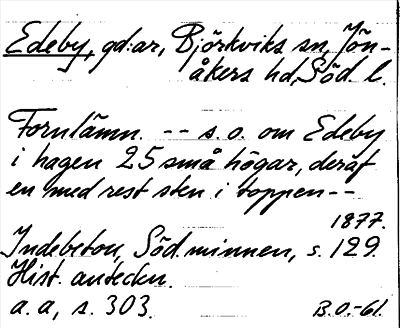 Edeby, gd:ar, Björkviks sn, Jön-
åkers hd, Söd. l.
Fornlämn. -- s. o. om Edeby
i hagen 25 små högar, deraf
en med rest sten i toppen --
1877.
Indebetou, Söd. minnen, s. 129.
Hist. anteckn.
a. a, s. 303.
B.O.-61.